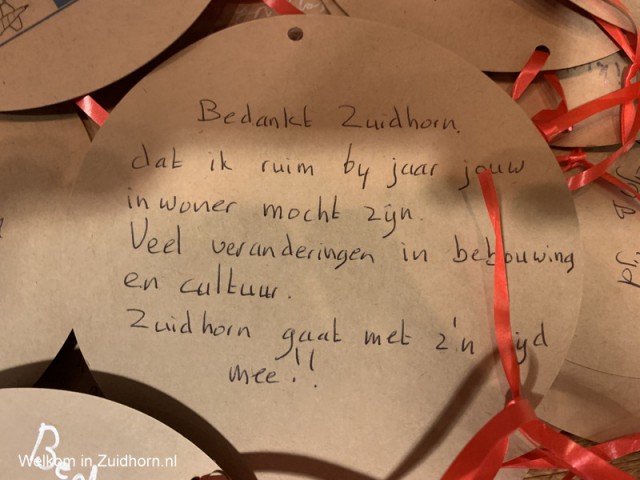 Bedankt Zuidhorn.
dat ik ruim 64 jaar jouw
inwoner mocht zijn.
Veel veranderingen in bebouwing
en cultuur.
Zuidhorn gaat met z'n ijd
mee!!
Welkom in Zuidhorn.nl